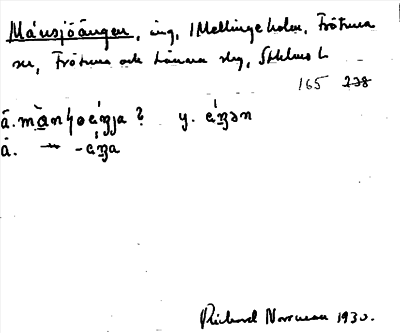 Månsjöängen, äng, Mellingeholm, Frötuna
sn, Frötuna och Länna slg, Sthlms l.
165 238
ä. mànʃoéŋja ? y. éŋən
ä. — -éŋa
Richard Norrman 1930.